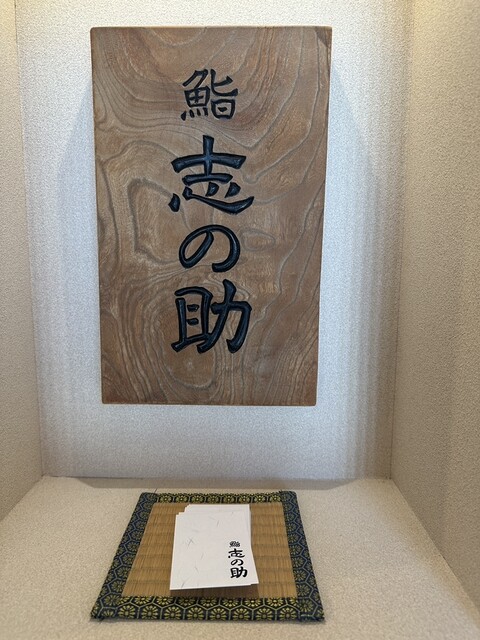 鮨
志の助
鮨
志の助